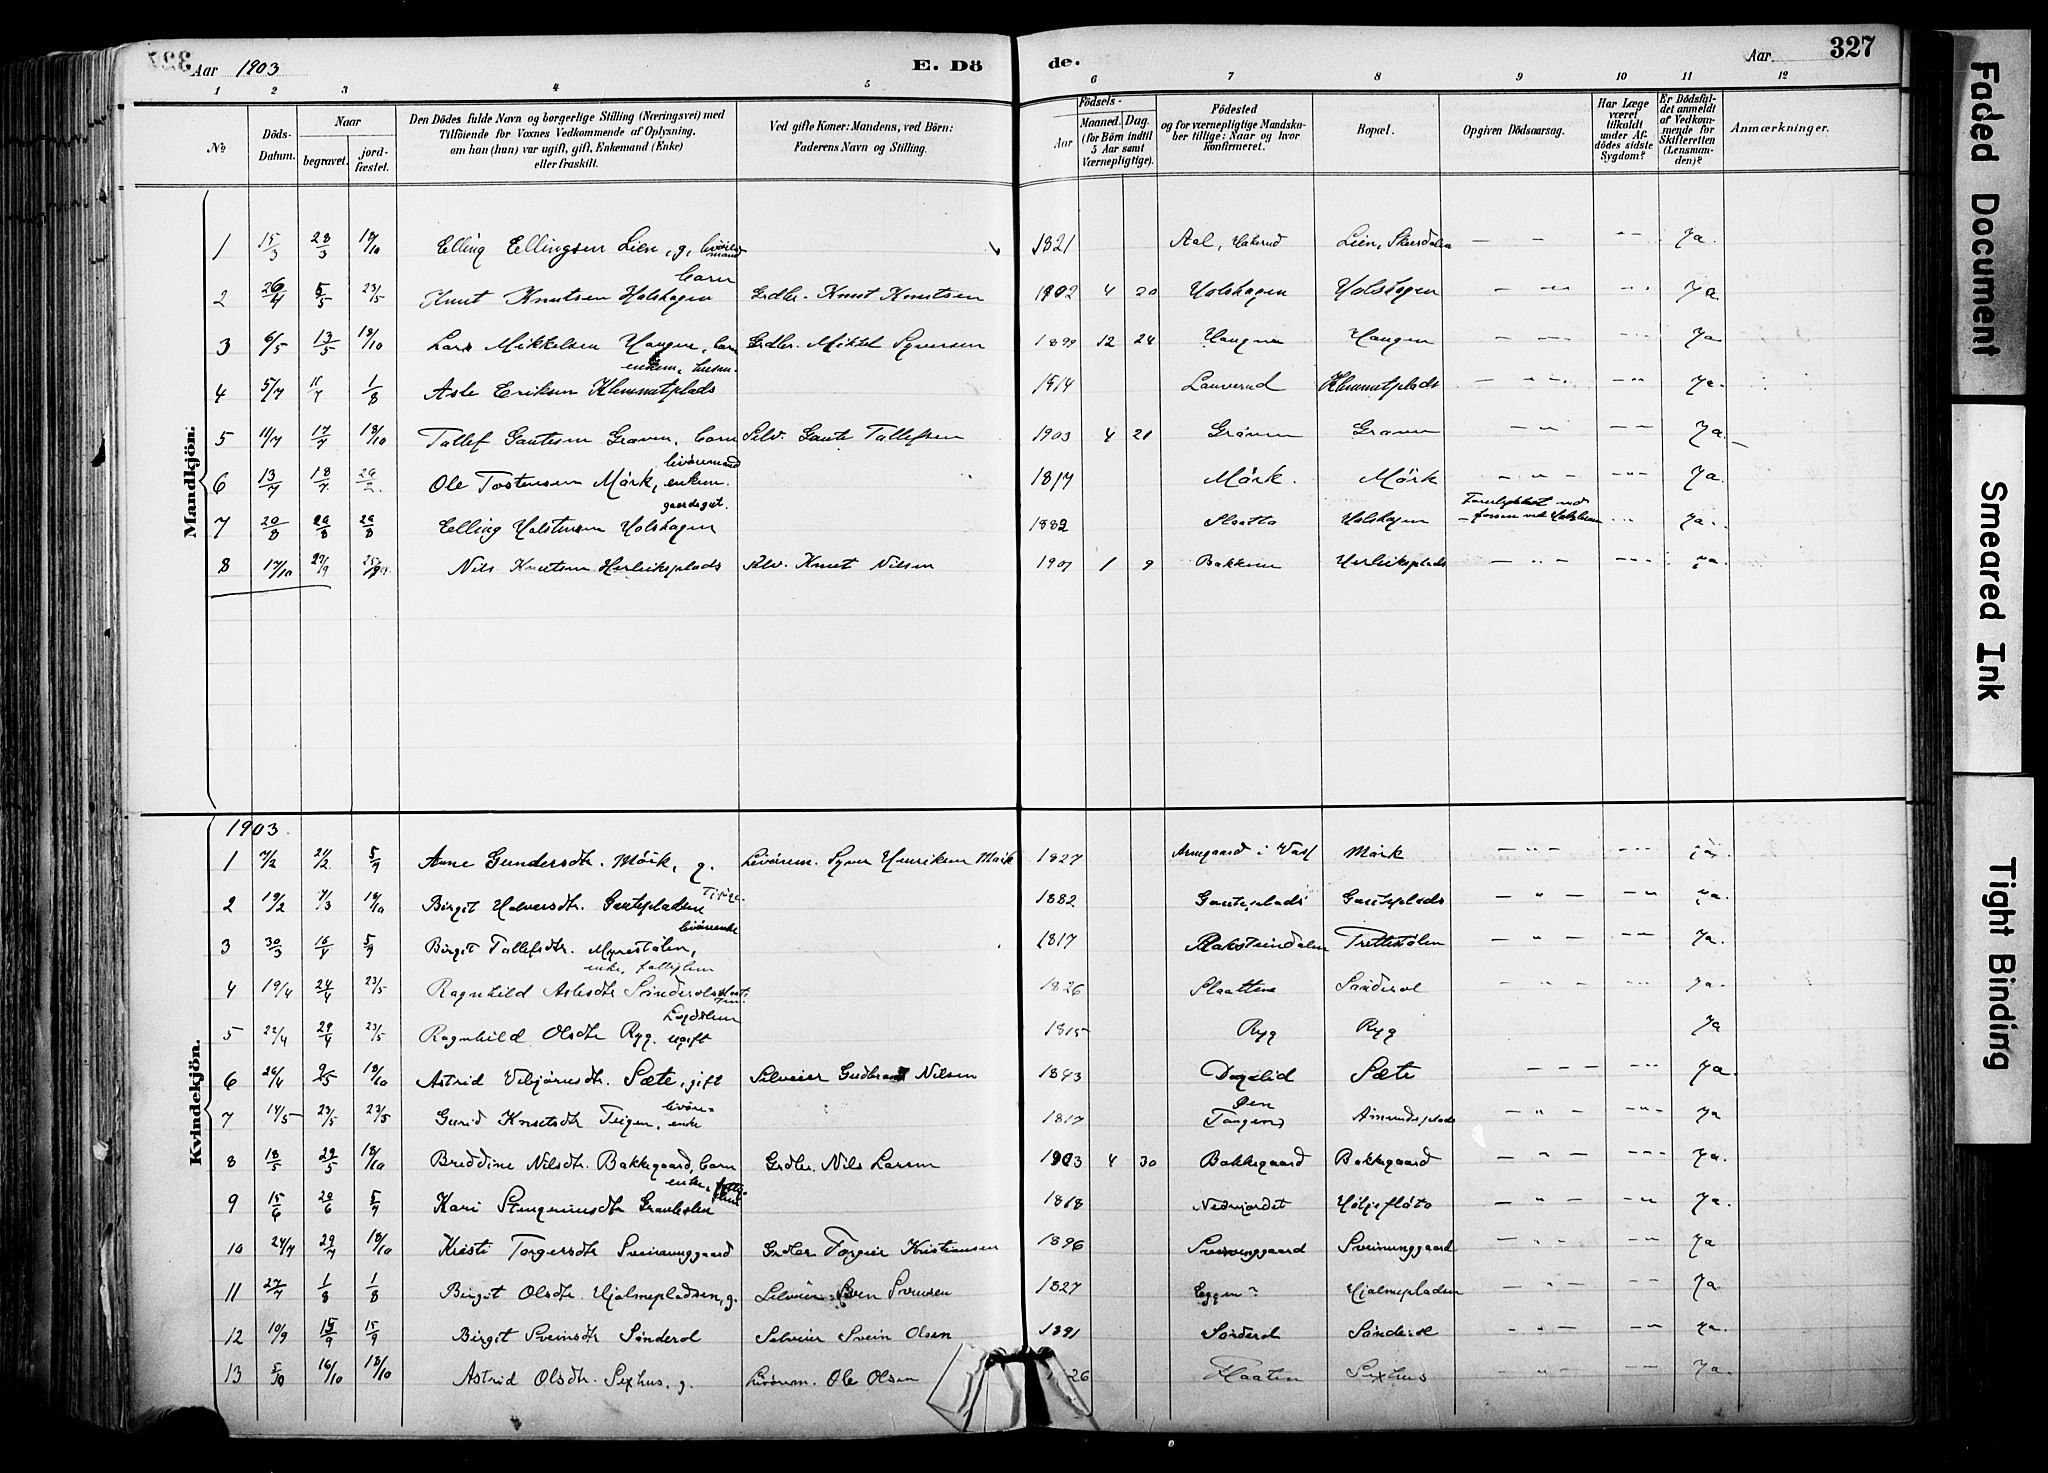 Aar 1903 E. Dö de. Aar 327
1 2 3 4 5 6 7 8 9 10 11 12
No
Döds-Datum.
Naar
begravet.
jord-fæstet.
Den Dödes fulde Navn og borgerlige Stilling (Næringsvei) med
Tilföiende for Voxnes Vedkommende af Oplysning,
om han (hun) var ugift, gift, Enkemand (Enke)
eller fraskilt.
Ved gifte Koner: Mandens, ved Börn:
Faderens Navn og Stilling.
Födsels-
Aar
Maaned. Dag.
(for Börn indtil
5 Aar samt
Værnepligtige).
Födested
og for værnepligtige Mandska-
ber tillige: Naar og hvor
konfirmeret.
Bopæl.
Opgiven Dödsaarsag.
Har Læge
været
tilkaldt
under Af-
dödes sidste
Sygdom?
Er Dödsfal-
det anmeldt
af Vedkom-
mende for
Skifteretten
(Lensman-
den)?
Anmærkninger.
Mandkjön.
1 15/3 28/3 18/10 Elling Ellingsen Lien, g, 1821 Aal, Lien, Ja.
2 26/4 5/5 23/5 Knut Knutsen Holshagen barn Grdbr. Knut Knutsen 1902 4 20 Holshagen Holshagen Ja
3 6/5 13/5 18/10 Lars Mikkelsen Haugen, barn Grdbr. Mikkel Syversen 1899 12 24 Haugen Haugen Ja
4 5/7 11/7 1/8 Asle Eriksen Klemmetplads enkem. 1814 Lauverud Klemmetplads Ja.
5 11/7 17/7 18/10 Tollef Gautesen Graven, barn Selv. Gaute Tollefsen 1903 4 21 Graven Graven Ja.
6 13/7 18/7 Ole Tostensen Mörk, enkem. livöremand 1817 Mörk. Mörk Ja
7 20/8 29/8 29/8 Elling Holstensen Holshagen gaardsgut. 1882 Slaatto Holshagen Ja.
8 17/10 27/9 Nils Knutsen Herleiksplads Selv. Knut Nilsen 1901 1 9 Bakken Herleiksplads ja.
Kvindekjön.
1903
1 7/2 21/2 5/7 Anne Gundersdtr. Mörk, g. Livörem. Syver Henriksen Mörk 1827 i Vas/ Mörk ja.
2 19/2 7/3 18/10 Birgit Halvorsdtr. Gautepladsen 1882 Gauteplads Gauteplads ja.
3 30/3 16/4 5/7 Birgit Tollefsdtr. Myrestölen, livörenke 1817 Raksteindalen Trettestölen Ja.
4 19/4 24/4 23/5 Ragnhild Aslesdtr Sönderol enke, fattiglem 1826 Slaatten Sönderol Ja.
5 22/4 29/4 23/5 Ragnhild Olsdtr Ryg. ugift Legdslem 1815 Ryg Ryg Ja
6 26/4 9/5 18/10 Astrid Vebjörnsdtr. Sæte, gift Selveier Gudbrand Nilsen 1843 Dogalid Sæte Ja.
7 14/5 23/5 23/5 Gunid Knutsdtr Teigen, livöre= enke 1817 Amundsplads Ja
8 18/5 29/5 18/10 Breddine Nilsdtr. Bakkegaard, barn Grdbr. Nils Larsen 1903 4 30 Bakkegaard Bakkegaard Ja.
9 15/6 20/6 5/7 Kari enke, 1818 Nedrejordet Höljeflöto Ja.
10 24/7 29/7 18/10 Kristi Torgersdtr Sveinunggaard Grdbr Torgeir Kristiansen 1896 Sveinunggaard Sveinunggaard Ja
11 27/7 1/8 1/8 Birgit Olsdtr. Hjalmepladsen, g. Selveier Sven Svensen 1827 Eggen? Hjalmepladsen Ja
12 10/9 15/9 15/9 Birgit Sveinsdtr Sönderol Selveier Svein Olsen 1891 Sönderol Sönderol Ja.
13 5/10 16/10 18/10 Astrid Olsdtr. Sexhus, g. Livörem. Ole Olsen 26 Flaaten Sexhus Ja.
Faded Document
Smeared Ink
Tight Binding